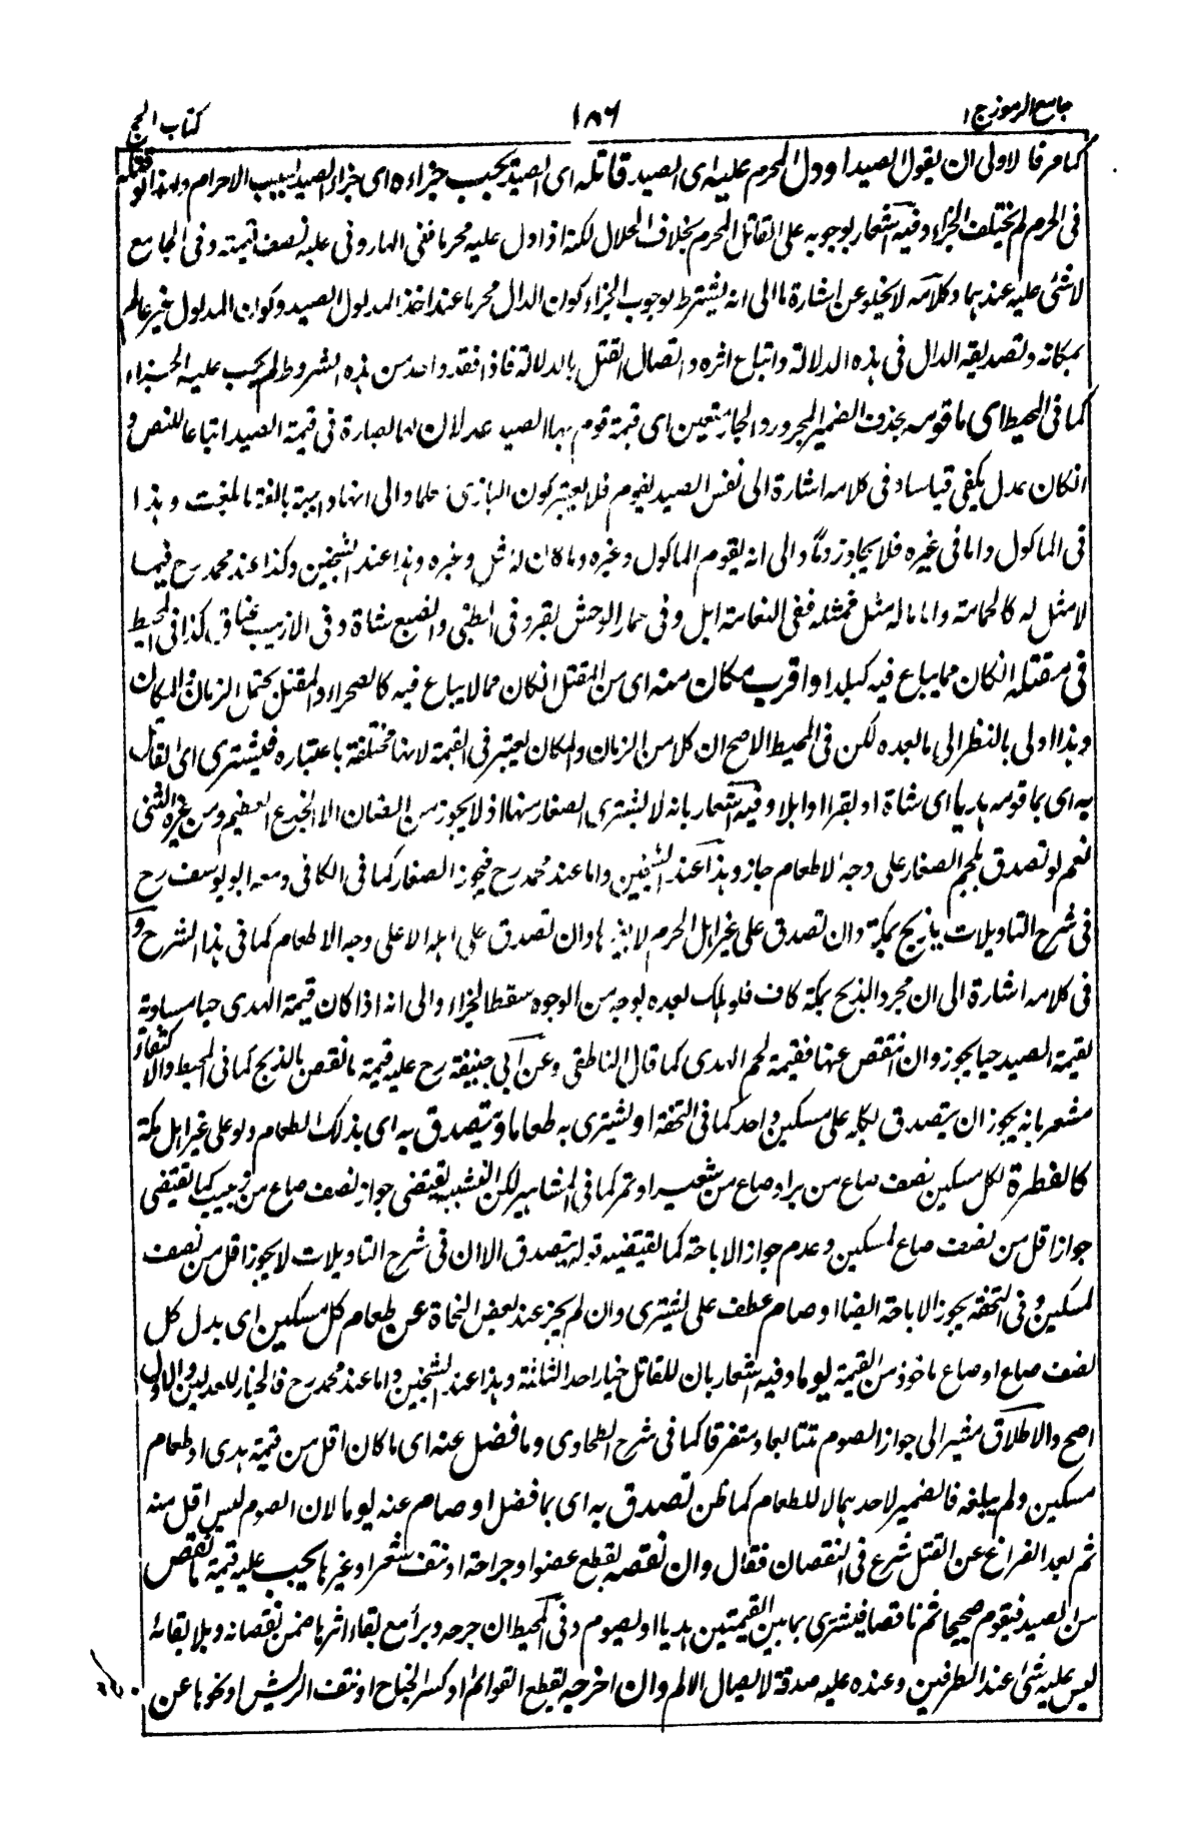 جامع الرموز ج ١
١٨٦
كتاب الحج
كما مر فالاولى ان يقول الصيد او دل المحرم عليه اى الصيد قاتله اى الصيد يجب جزاءه اى جزاء الصيد بسبب الاحرام ولهذا لو قتله
فى الحرم لم يختلف الجزاء وفيه اشعار بوجوبه على القاتل المحرم بخلاف الحلال لكنه اذا دل عليه محرما ففى الهارونى عليه نصف قيمته وفى الجامع
لا شئ عليه عندهما وكلامه لا يخلو عن اشارة ما الى انه يشترط لوجوب الجزاء كون الدال محرما عند اخذ المدلول الصيد وكون المدلول غير عالم
بمكانه وتصديقه الدال فى هذه الدلالة واتباع اثره واتصال القتل بالدلالة فاذا فقد واحد من هذه الشروط لم يجب عليه الجزاء
كما فى المحيط اى ما قومه بحذف الضمير المجرور والجار متعين اى قيمة قوم بها الصيد عدلان لهما بصارة فى قيمة الصيد اتباعا للنص و
انكان عدل يكفى قياسا وفى كلامه اشارة الى نفس الصيد يقوم فلا يعتبر كون البازى معلما والى انها واجبة بالغة ما بلغت وهذا
فى الماكول واما فى غيره فلا يجاوز دما والى انه يقوم الماكول وغيره وما كان له مثل وغيره وهذا عند الشيخين وكذا عند محمد رح فيما
لا مثل له كالحمامة واما ما له مثل فمثله ففى النعامة ابل وفى حمار الوحش بقر وفى الظبى والضبع شاة وفى الارنب عناق كذا فى المحيط
فى مقتله انكان مما يباع فيه كبلد او اقرب مكان منه اى من المقتل انكان مما لا يباع فيه كالصحراء والمقتل يحتمل الزمان والمكان
وهذا اولى بالنظر الى ما بعده لكن فى المحيط الاصح ان كلا من الزمان والمكان يعتبر فى القيمة لانها مختلفة باعتباره فيشترى اى القاتل
به اى بما قومه هديا اى شاة او بقرا او ابلا وفيه اشعار بانه لا يشترى الصغار منها اذ لا يجوز من الضان الا الجذع العظيم ومن غيره الثنى
نعم لو تصدق بلحم الصغار على وجه الاطعام جاز وهذا عند الشيخين واما عند محمد رح فيجوز الصغار كما فى الكافى ومعه ابو يوسف رح
فى شرح التاويلات يذبح بمكة وان تصدق على غير اهل الحرم لا بغيرها وان تصدق على اهله الا على وجه الاطعام كما فى هذا الشرح و
فى كلامه اشارة الى ان مجرد الذبح بمكة كاف فلو هلك بعده بوجه من الوجوه سقط الجزاء والى انه اذا كان قيمة الهدى حيا مساوية
لقيمة الصيد حيا يجوز وان انتقص عنها فقيمة لحم الهدى كما قال الناطقى وعن ابى حنيفة رح عليه قيمة ما نقص بالذبح كما فى المحيط والاكتفاء
مشعر بانه يجوز ان يتصدق بكله على مسكين واحد كما فى التحفة او يشترى به طعاما ويتصدق به اى بذلك الطعام ولو على غير اهل مكة
كالفطرة لكل مسكين نصف صاع من بر او صاع من شعير او تمر كما فى المشاهير لكن التشبيه يقتضى جواز نصف صاع من زبيب كما يقتضى
جواز اقل من نصف صاع لمسكين وعدم جواز الاباحة كما يقتضيه قوله يتصدق الا ان فى شرح التاويلات لا يجوز اقل من نصف
لمسكين وفى التحفة يجوز الاباحة ايضا او صام عطف على يشترى وان لم يجز عند بعض النحاة عن طعام كل مسكين اى بدل كل
نصف صاع او صاع ماخوذ من القيمة يوما وفيه اشعار بان للقاتل خيار احد الثلثة وهذا عند الشيخين واما عند محمد رح فالخيار للعدلين والاول
اصح والاطلاق مشير الى جواز الصوم متتابعا ومتفرقا كما فى شرح الطحاوى وما فضل عنه اى ما كان اقل من قيمة هدى او طعام
مسكين ولم يبلغه فالضمير لاحدهما لا للطعام كما ظن تصدق به اى بما فضل او صام عنه يوما لان الصوم ليس اقل منه
ثم بعد الفراغ عن القتل شرع فى النقصان فقال وان نقصه بقطع عضو او جراحة او نتف شعر او غيرها يجب عليه قيمة ما نقص
من الصيد فيقوم صحيحا ثم ناقصا فيشترى بما بين القيمتين هديا او يصوم وفى المحيط ان جرحه وبرأ مع بقاء اثرها ضمن نقصانه وبلا بقائه
ليس عليه شئ عند الطرفين وعنده عليه صدقة لايصال الالم وان اخرجه بقطع القوائم او كسر الجناح او نتف الريش او نحوها عن